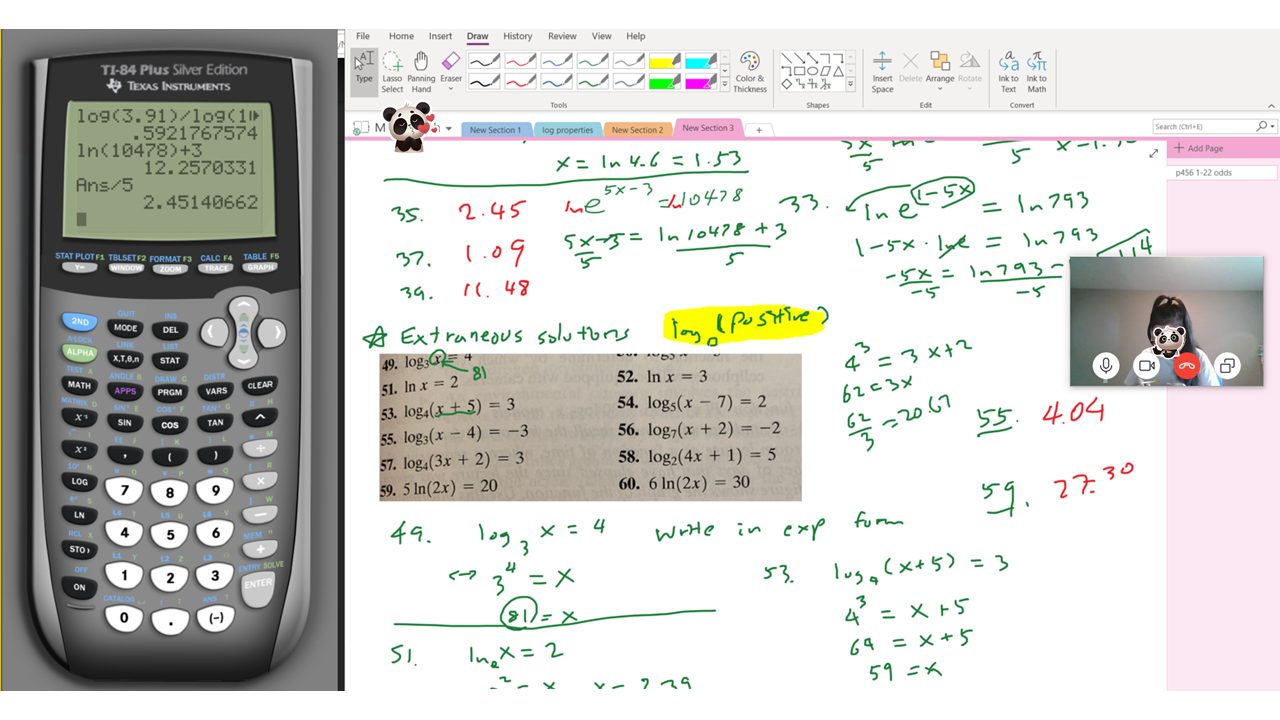 TI-84 Plus Silver Edition
TEXAS INSTRUMENTS
log(3.91)/log(1
.5921767574
ln(10478)+3
12.2570331
Ans/5
2.45140662
STAT PLOT F1 TBLSET F2 FORMAT F3 CALC F4 TABLE F5
Y= WINDOW ZOOM TRACE GRAPH
QUIT INS
2ND MODE DEL
A-LOCK LINK LIST
ALPHA X,T,θ,n STAT
TEST A ANGLE B DRAW C DISTR
MATH APPS PRGM VARS CLEAR
SIN COS TAN ^
x² , ( ) ÷
LOG 7 8 9 ×
LN 4 5 6 −
RCL X MEM "
STO› 1 2 3 +
OFF CATALOG ENTRY SOLVE
ON 0 . (-) ENTER
File Home Insert Draw History Review View Help
Type Lasso Select Panning Hand Eraser
Color & Thickness
Insert Space Delete Arrange Rotate
Ink to Text Ink to Math
Tools Shapes Edit Convert
M New Section 1 log properties New Section 2 New Section 3 +
Search (Ctrl+E)
Add Page
p456 1-22 odds
x = ln 4.6 = 1.53
5
35. 2.45 ln e^(5x-3) = ln 10478
5x-3 = ln 10478 + 3
5 5
37. 1.09
39. 11.48
33. ln e^(1-5x) = ln 793
1-5x · ln e = ln 793
-5x = ln 793 -
-5 -5
☆ Extraneous solutions log□(positive)
49. log₃ x = 4
81
51. ln x = 2 52. ln x = 3
53. log₄(x + 5) = 3 54. log₅(x − 7) = 2
55. log₃(x − 4) = −3 56. log₇(x + 2) = −2
57. log₄(3x + 2) = 3 58. log₂(4x + 1) = 5
59. 5 ln(2x) = 20 60. 6 ln(2x) = 30
4³ = 3x+2
62 = 3x
62/3 = 20.67
55. 4.04
59. 27.30
49. log₃ x = 4 write in exp form
↔ 3⁴ = x
81 = x
51. lnₑ x = 2
53. log₄(x+5) = 3
4³ = x+5
64 = x+5
59 = x